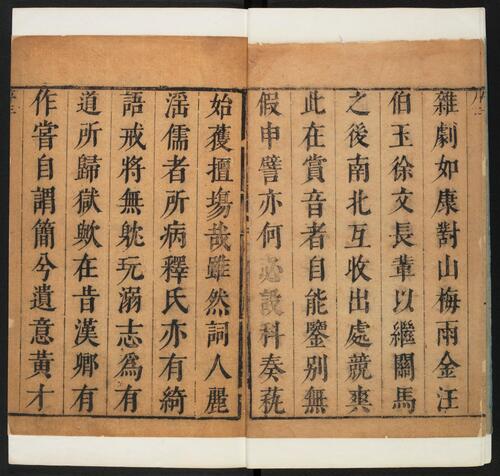 雜劇如康對山梅雨金汪
伯玉徐文長軰以繼關馬
之後南北互收出處競爽
此在賞音者自能鑒别無
假申譬亦何必設科奏蓺
始獲擅塲哉雖然詞人麗
滛儒者所病釋氏亦有綺
語戒將無躭玩溺志爲有
道所歸獄歟在昔漢卿有
作嘗自謂簡兮遺意黄才